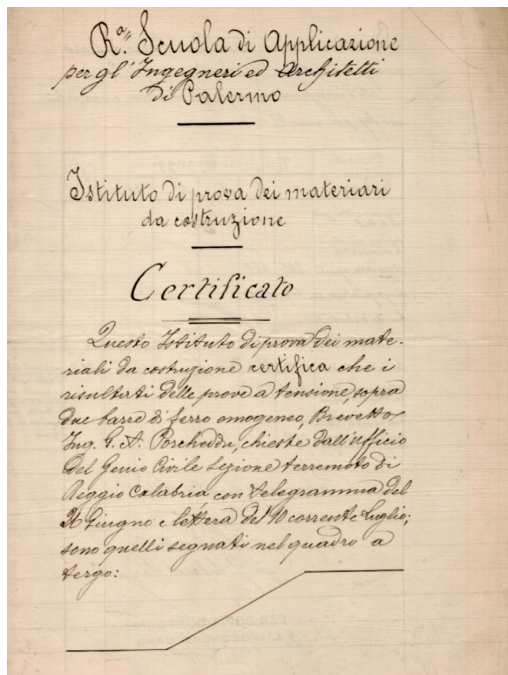 Rª. Scuola di Applicazione
per gl'Ingegneri ed Architetti
di Palermo
Istituto di prova dei materiari
da costruzione
Certificato
Questo Istituto di prova dei mate-
riali da costruzione certifica che i
risultati delle prove a tensione, sopra
due barre di ferro omogeneo, Brevetto
Ing. G. A. Porcheddu, chieste dall'ufficio
del Genio Civile Sezione terremoto di
Reggio Calabria con telegramma del
26 Giugno e lettera del 10 corrente Luglio;
sono quelli segnati nel quadro a
tergo: